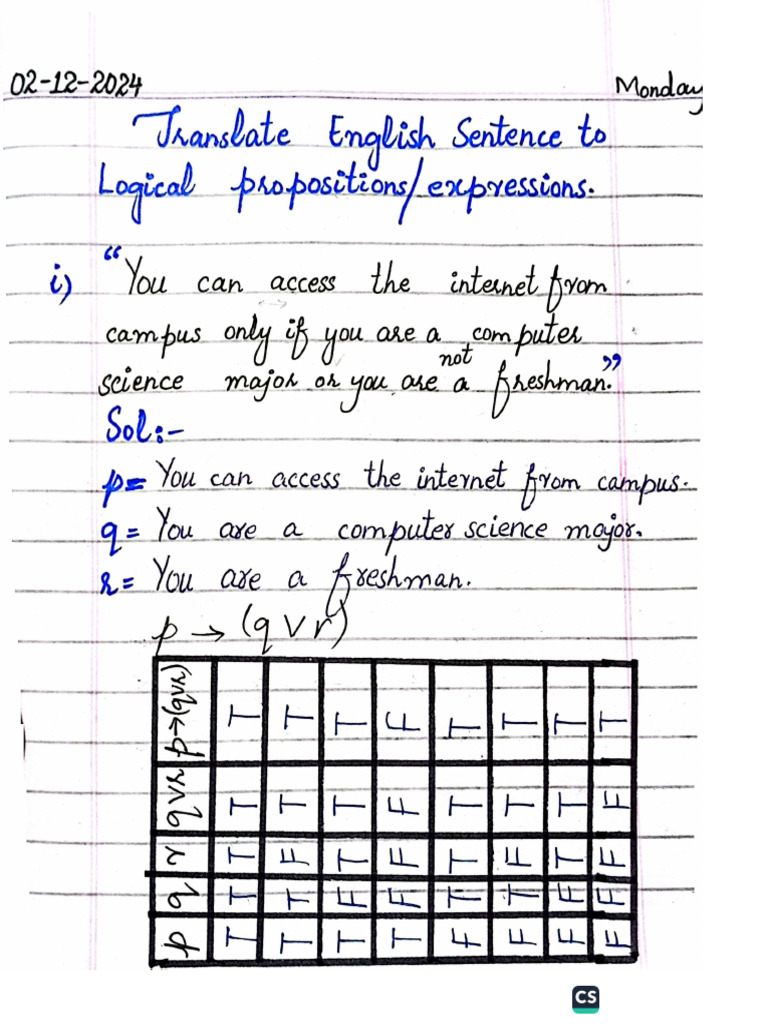 02-12-2024 Monday
Translate English Sentence to
Logical propositions/expressions.
i) “You can access the internet from
campus only if you are a computer
science major or you are not a freshman.”
Sol:-
p= You can access the internet from campus.
q= You are a computer science major.
r= You are a freshman.
p → (q ∨ r)
p q r q∨r p→(q∨r)
T T T T T
T T F T T
T F T T T
T F F F F
F T T T T
F T F T T
F F T T T
F F F F T
CS